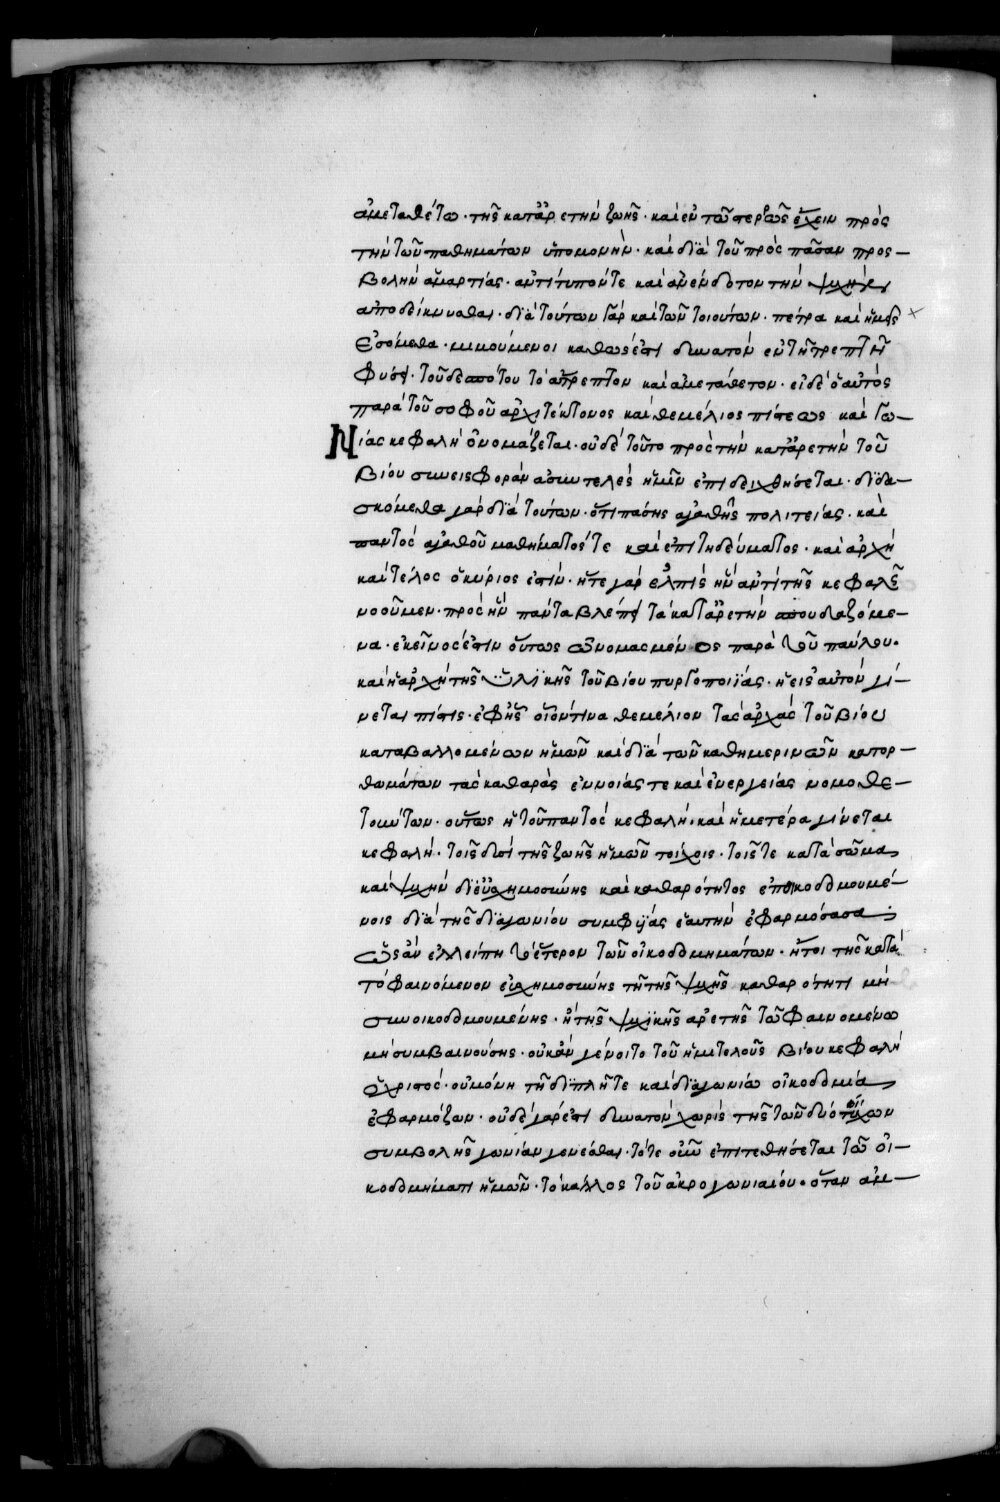 ἀμεταθέτω· τῆς κατ ἀρετὴν ζωῆς· καὶ ἐν τῶ στερρῶς ἔχειν πρὸς
τὴν τῶν παθημάτων ὑπομονὴν· καὶ διὰ τοῦ πρὸς πᾶσαν προσ–
βολὴν ἁμαρτίας· ἀντίτυπόν τε καὶ ἀνένδοτον τὴν ψυχὴν
ἀποδείκνυσθαι· διὰ τούτων γὰρ καὶ τῶν τοιούτων· πέτρα καὶ ἡμεῖς
ἐσόμεθα· μιμούμενοι καθώς ἐστι δυνατὸν ἐν τῆ τρεπτῆ
φύσει· τοῦ δεσπότου τὸ ἄτρεπτον καὶ ἀμετάθετον· εἰ δὲ ὁ αὐτὸς
παρὰ τοῦ σοφοῦ ἀρχιτέκτονος καὶ θεμέλιος πίστεως καὶ γω–
νίας κεφαλὴ ὀνομάζεται· οὐδὲ τοῦτο πρὸς τὴν κατ ἀρετὴν τοῦ
βίου συνεισφορὰν ἀσυντελὲς ἡμῖν ἐπιδειχθήσεται· διδα–
σκόμεθα γὰρ διὰ τούτων· ὅτι πάσης ἀγαθῆς πολιτείας· καὶ
παντὸς ἀγαθοῦ μαθήματός τε καὶ ἐπιτηδεύματος· καὶ ἀρχὴ
καὶ τέλος ὁ κύριος ἐστὶν· ἥτε γὰρ ἐλπὶς ἣν ἀντὶ τῆς κεφαλῆς
νοοῦμεν· πρὸς ἣν πάντα βλέπει τὰ κατ ἀρετὴν σπουδαζόμε–
να· ἐκεῖνος ἐστιν οὕτως ὠνομασμένος παρὰ τοῦ παύλου·
καὶ ἡ ἀρχὴ τῆς ὑλικῆς τοῦ βίου πυργοποιΐας· ἡ εἰς αὐτὸν γί–
νεται πίστις· ἐφ ἧς οἷόν τινα θεμέλιον τὰς ἀρχὰς τοῦ βίου
καταβαλλομένων ἡμῶν καὶ διὰ τῶν καθημερινῶν κατορ–
θωμάτων τὰς καθαρὰς ἐννοίας τε καὶ ἐνεργείας νομοθε–
τούντων· οὕτως ἡ τοῦ παντὸς κεφαλὴ· καὶ ἡμετέρα γίνεται
κεφαλὴ· τοῖς δυσὶ τῆς ζωῆς ἡμῶν τοίχοις· τοῖς τε κατὰ σῶμα
καὶ ψυχὴν δι εὐσχημοσύνης καὶ καθαρότητος ἐποικοδομουμέ–
νοις διὰ τῆς διαγωνίου συμφυΐας ἑαυτὴν ἐφαρμόσασα·
ὡς ἂν ἐλλείπη τὸ ἕτερον τῶν οἰκοδομημάτων· ἤτοι τῆς κατὰ
τὸ φαινόμενον εὐσχημοσύνης τῆ τῆς ψυχῆς καθαρότητι μὴ
συνοικοδομουμένης· ἢ τῆς ψυχικῆς ἀρετῆς τῶ φαινομένω
μὴ συμβαινούσης· οὐκ ἂν γένοιτο τοῦ ἡμιτελοῦς βίου κεφαλὴ
ὁ χριστὸς· ὁ μόνη τῆ διπλῆ τε καὶ διαγωνίω οἰκοδομία
ἐφαρμόζων· οὐδὲ γάρ ἐστι δυνατὸν χωρὶς τῆς τῶν δύο τοίχων
συμβολῆς γωνίαν γενέσθαι· τότε οὖν ἐπιτεθήσεται τῶ οἰ–
κοδομήματι ἡμῶν· τὸ κάλλος τοῦ ἀκρογωνιαίου· ὅταν ἀμ–